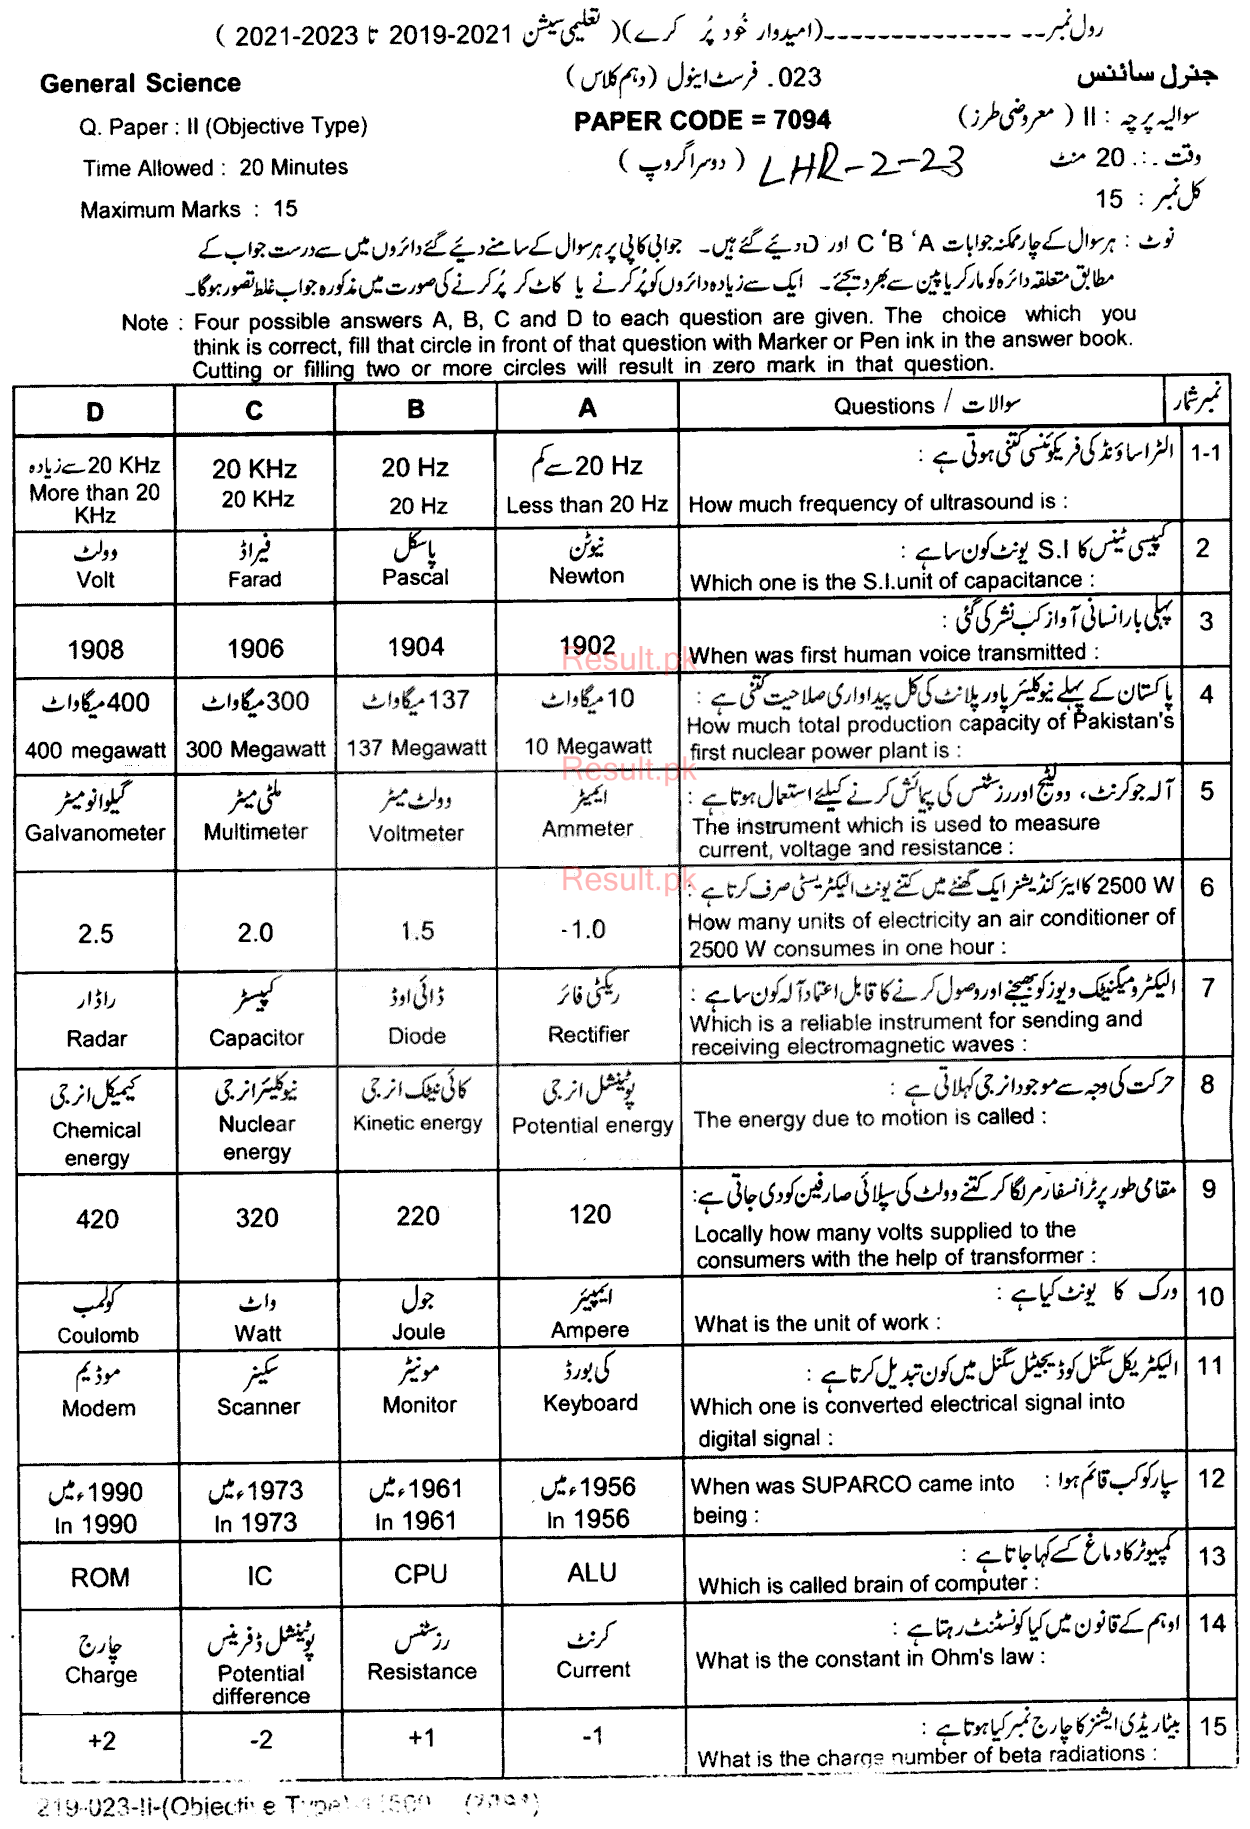 رول نمبر ---------------(امیدوار خود پُر کرے)( تعلیمی سیشن 2021-2019 تا 2023-2021 )
General Science
023. فرسٹ اینول (دہم کلاس)
جنرل سائنس
Q. Paper : II (Objective Type)
PAPER CODE = 7094
سوالیہ پرچہ : II ( معروضی طرز)
Time Allowed : 20 Minutes
(دوسرا گروپ) LHR-2-23
وقت : 20 منٹ
Maximum Marks : 15
کل نمبر : 15
نوٹ : ہر سوال کے چار ممکنہ جوابات A، B، C اور D دیئے گئے ہیں۔ جوابی کاپی پر ہر سوال کے سامنے دیئے گئے دائروں میں سے درست جواب کے
مطابق متعلقہ دائرہ کو مارکر یا پین سے بھر دیجئے۔ ایک سے زیادہ دائروں کو پُر کرنے یا کاٹ کر پُر کرنے کی صورت میں مذکورہ جواب غلط تصور ہوگا۔
Note : Four possible answers A, B, C and D to each question are given. The choice which you
think is correct, fill that circle in front of that question with Marker or Pen ink in the answer book.
Cutting or filling two or more circles will result in zero mark in that question.
D C B A Questions / سوالات نمبر شمار
1-1 الٹراساؤنڈ کی فریکوئنسی کتنی ہوتی ہے :
20 KHz سے زیادہ 20 KHz 20 Hz 20 Hz سے کم
More than 20 KHz 20 KHz 20 Hz Less than 20 Hz How much frequency of ultrasound is :
2 کپیسی ٹینس کا S.I یونٹ کون سا ہے :
وولٹ فیراڈ پاسکل نیوٹن
Volt Farad Pascal Newton Which one is the S.I.unit of capacitance :
3 پہلی بار انسانی آواز کب نشر کی گئی :
1908 1906 1904 1902 When was first human voice transmitted :
4 پاکستان کے پہلے نیوکلیئر پاور پلانٹ کی کل پیداواری صلاحیت کتنی ہے :
400 میگاواٹ 300 میگاواٹ 137 میگاواٹ 10 میگاواٹ
How much total production capacity of Pakistan's
400 megawatt 300 Megawatt 137 Megawatt 10 Megawatt first nuclear power plant is :
5 آلہ جو کرنٹ، وولٹیج اور رزسٹنس کی پیمائش کرنے کیلئے استعمال ہوتا ہے :
گیلوانومیٹر ملٹی میٹر وولٹ میٹر ایمیٹر
Galvanometer Multimeter Voltmeter Ammeter The instrument which is used to measure
current, voltage and resistance :
6 2500 W کا ایئرکنڈیشنر ایک گھنٹے میں کتنے یونٹ الیکٹریسٹی صرف کرتا ہے :
How many units of electricity an air conditioner of
2.5 2.0 1.5 -1.0 2500 W consumes in one hour :
7 الیکٹرومیگنیٹک ویوز کو بھیجنے اور وصول کرنے کا قابل اعتماد آلہ کون سا ہے :
راڈار کپیسٹر ڈائی اوڈ ریکٹی فائر
Radar Capacitor Diode Rectifier Which is a reliable instrument for sending and
receiving electromagnetic waves :
8 حرکت کی وجہ سے موجود انرجی کہلاتی ہے :
کیمیکل انرجی نیوکلیئر انرجی کائی نیٹک انرجی پوٹینشل انرجی
Chemical energy Nuclear energy Kinetic energy Potential energy The energy due to motion is called :
9 مقامی طور پر ٹرانسفارمر لگا کر کتنے وولٹ کی سپلائی صارفین کو دی جاتی ہے:
420 320 220 120 Locally how many volts supplied to the
consumers with the help of transformer :
10 ورک کا یونٹ کیا ہے :
کولمب واٹ جول ایمپیئر
Coulomb Watt Joule Ampere What is the unit of work :
11 الیکٹریکل سگنل کو ڈیجیٹل سگنل میں کون تبدیل کرتا ہے :
موڈیم سکینر مونیٹر کی بورڈ
Modem Scanner Monitor Keyboard Which one is converted electrical signal into
digital signal :
12 سپارکو کب قائم ہوا : When was SUPARCO came into
1990ء میں 1973ء میں 1961ء میں 1956ء میں
In 1990 In 1973 In 1961 In 1956 being :
13 کمپیوٹر کا دماغ کسے کہا جاتا ہے :
ROM IC CPU ALU Which is called brain of computer :
14 اوہم کے قانون میں کیا کونسٹنٹ رہتا ہے :
چارج پوٹینشل ڈفرینس رزسٹنس کرنٹ
Charge Potential difference Resistance Current What is the constant in Ohm's law :
15 بیٹا ریڈی ایشنز کا چارج نمبر کیا ہوتا ہے :
+2 -2 +1 -1 What is the charge number of beta radiations :
Result.pk
Result.pk
Result.pk
219-023-II-(Objective Type) (7094)